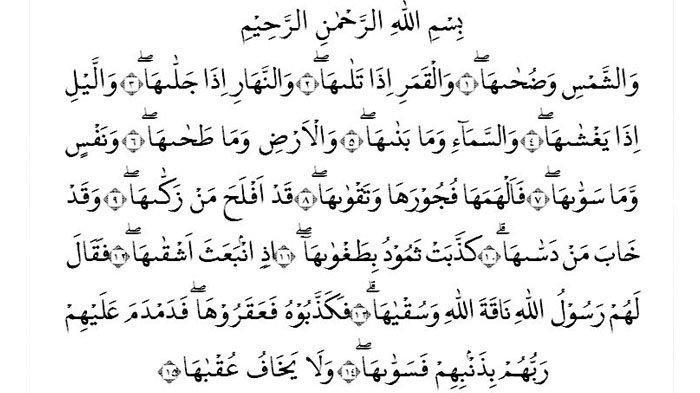 بِسْمِ اللهِ الرَّحْمٰنِ الرَّحِيْمِ
وَالشَّمْسِ وَضُحٰىهَاۖ ۝١ وَالْقَمَرِ اِذَا تَلٰىهَاۖ ۝٢ وَالنَّهَارِ اِذَا جَلّٰىهَاۖ ۝٣ وَالَّيْلِ
اِذَا يَغْشٰىهَاۖ ۝٤ وَالسَّمَاۤءِ وَمَا بَنٰىهَاۖ ۝٥ وَالْاَرْضِ وَمَا طَحٰىهَاۖ ۝٦ وَنَفْسٍ
وَّمَا سَوّٰىهَاۖ ۝٧ فَاَلْهَمَهَا فُجُوْرَهَا وَتَقْوٰىهَاۖ ۝٨ قَدْ اَفْلَحَ مَنْ زَكّٰىهَاۖ ۝٩ وَقَدْ
خَابَ مَنْ دَسّٰىهَاۗ ۝١٠ كَذَّبَتْ ثَمُوْدُ بِطَغْوٰىهَآۖ ۝١١ اِذِ انْۢبَعَثَ اَشْقٰىهَاۖ ۝١٢ فَقَالَ
لَهُمْ رَسُوْلُ اللهِ نَاقَةَ اللهِ وَسُقْيٰهَاۗ ۝١٣ فَكَذَّبُوْهُ فَعَقَرُوْهَاۖ فَدَمْدَمَ عَلَيْهِمْ
رَبُّهُمْ بِذَنْۢبِهِمْ فَسَوّٰىهَاۖ ۝١٤ وَلَا يَخَافُ عُقْبٰهَا ۝١٥